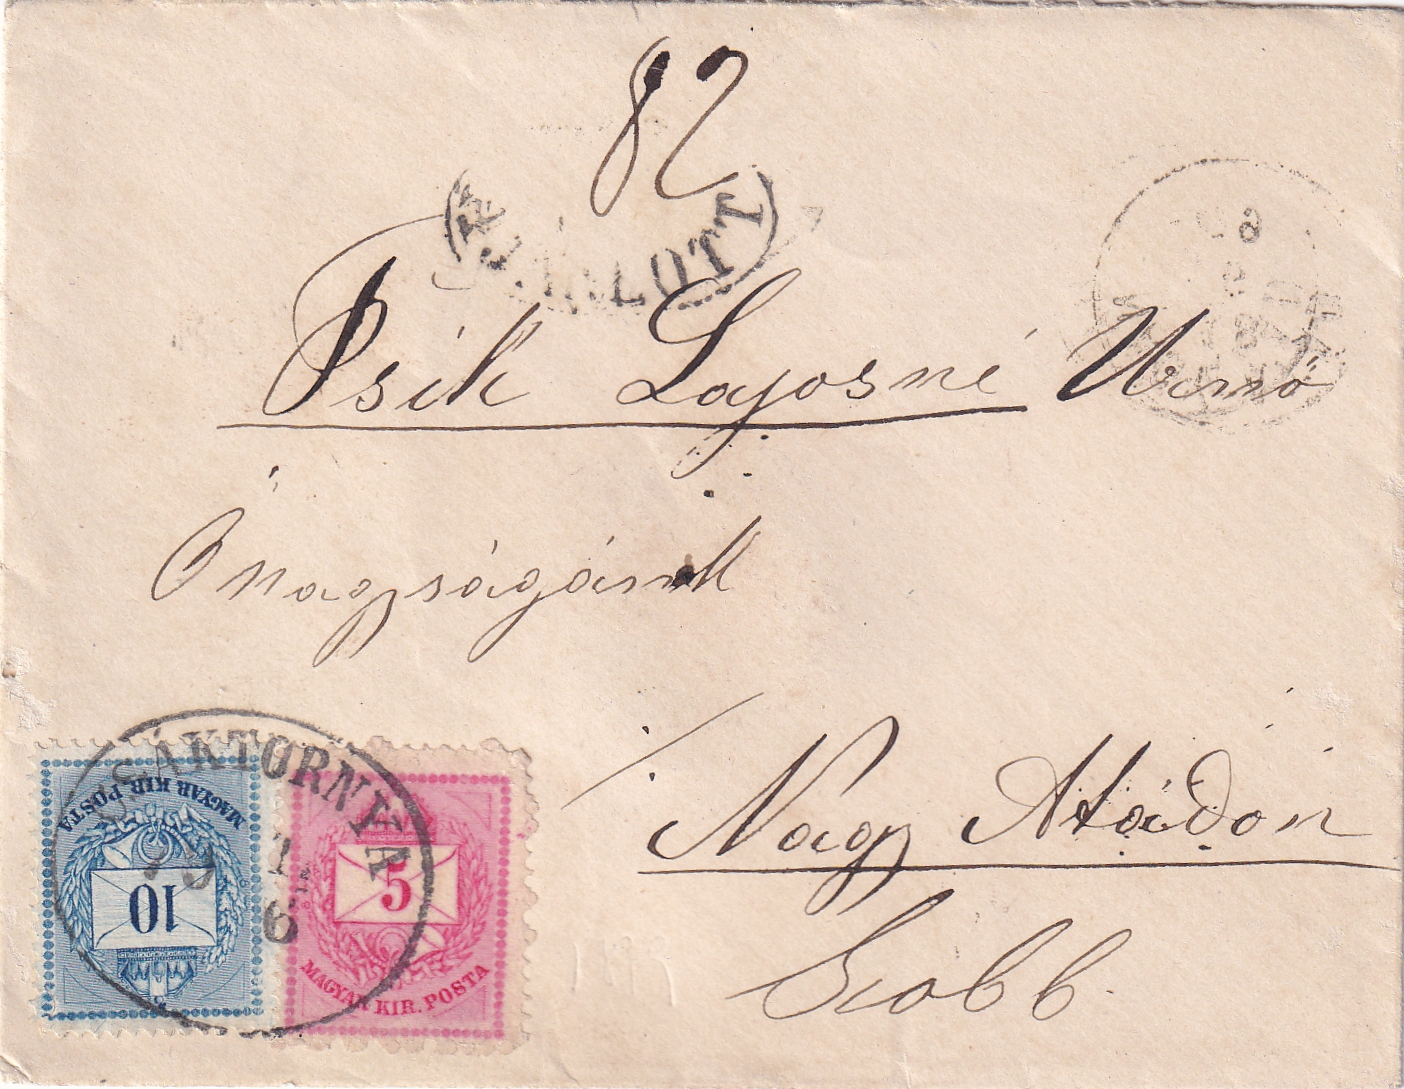 82
AJÁNLOTT
Psik Lajosné Urnő
Őnagyságának
Nagy Atádon
Szobb.
CSÁKTORNYA
79 1 6
MAGYAR KIR. POSTA
10
5
MAGYAR KIR. POSTA